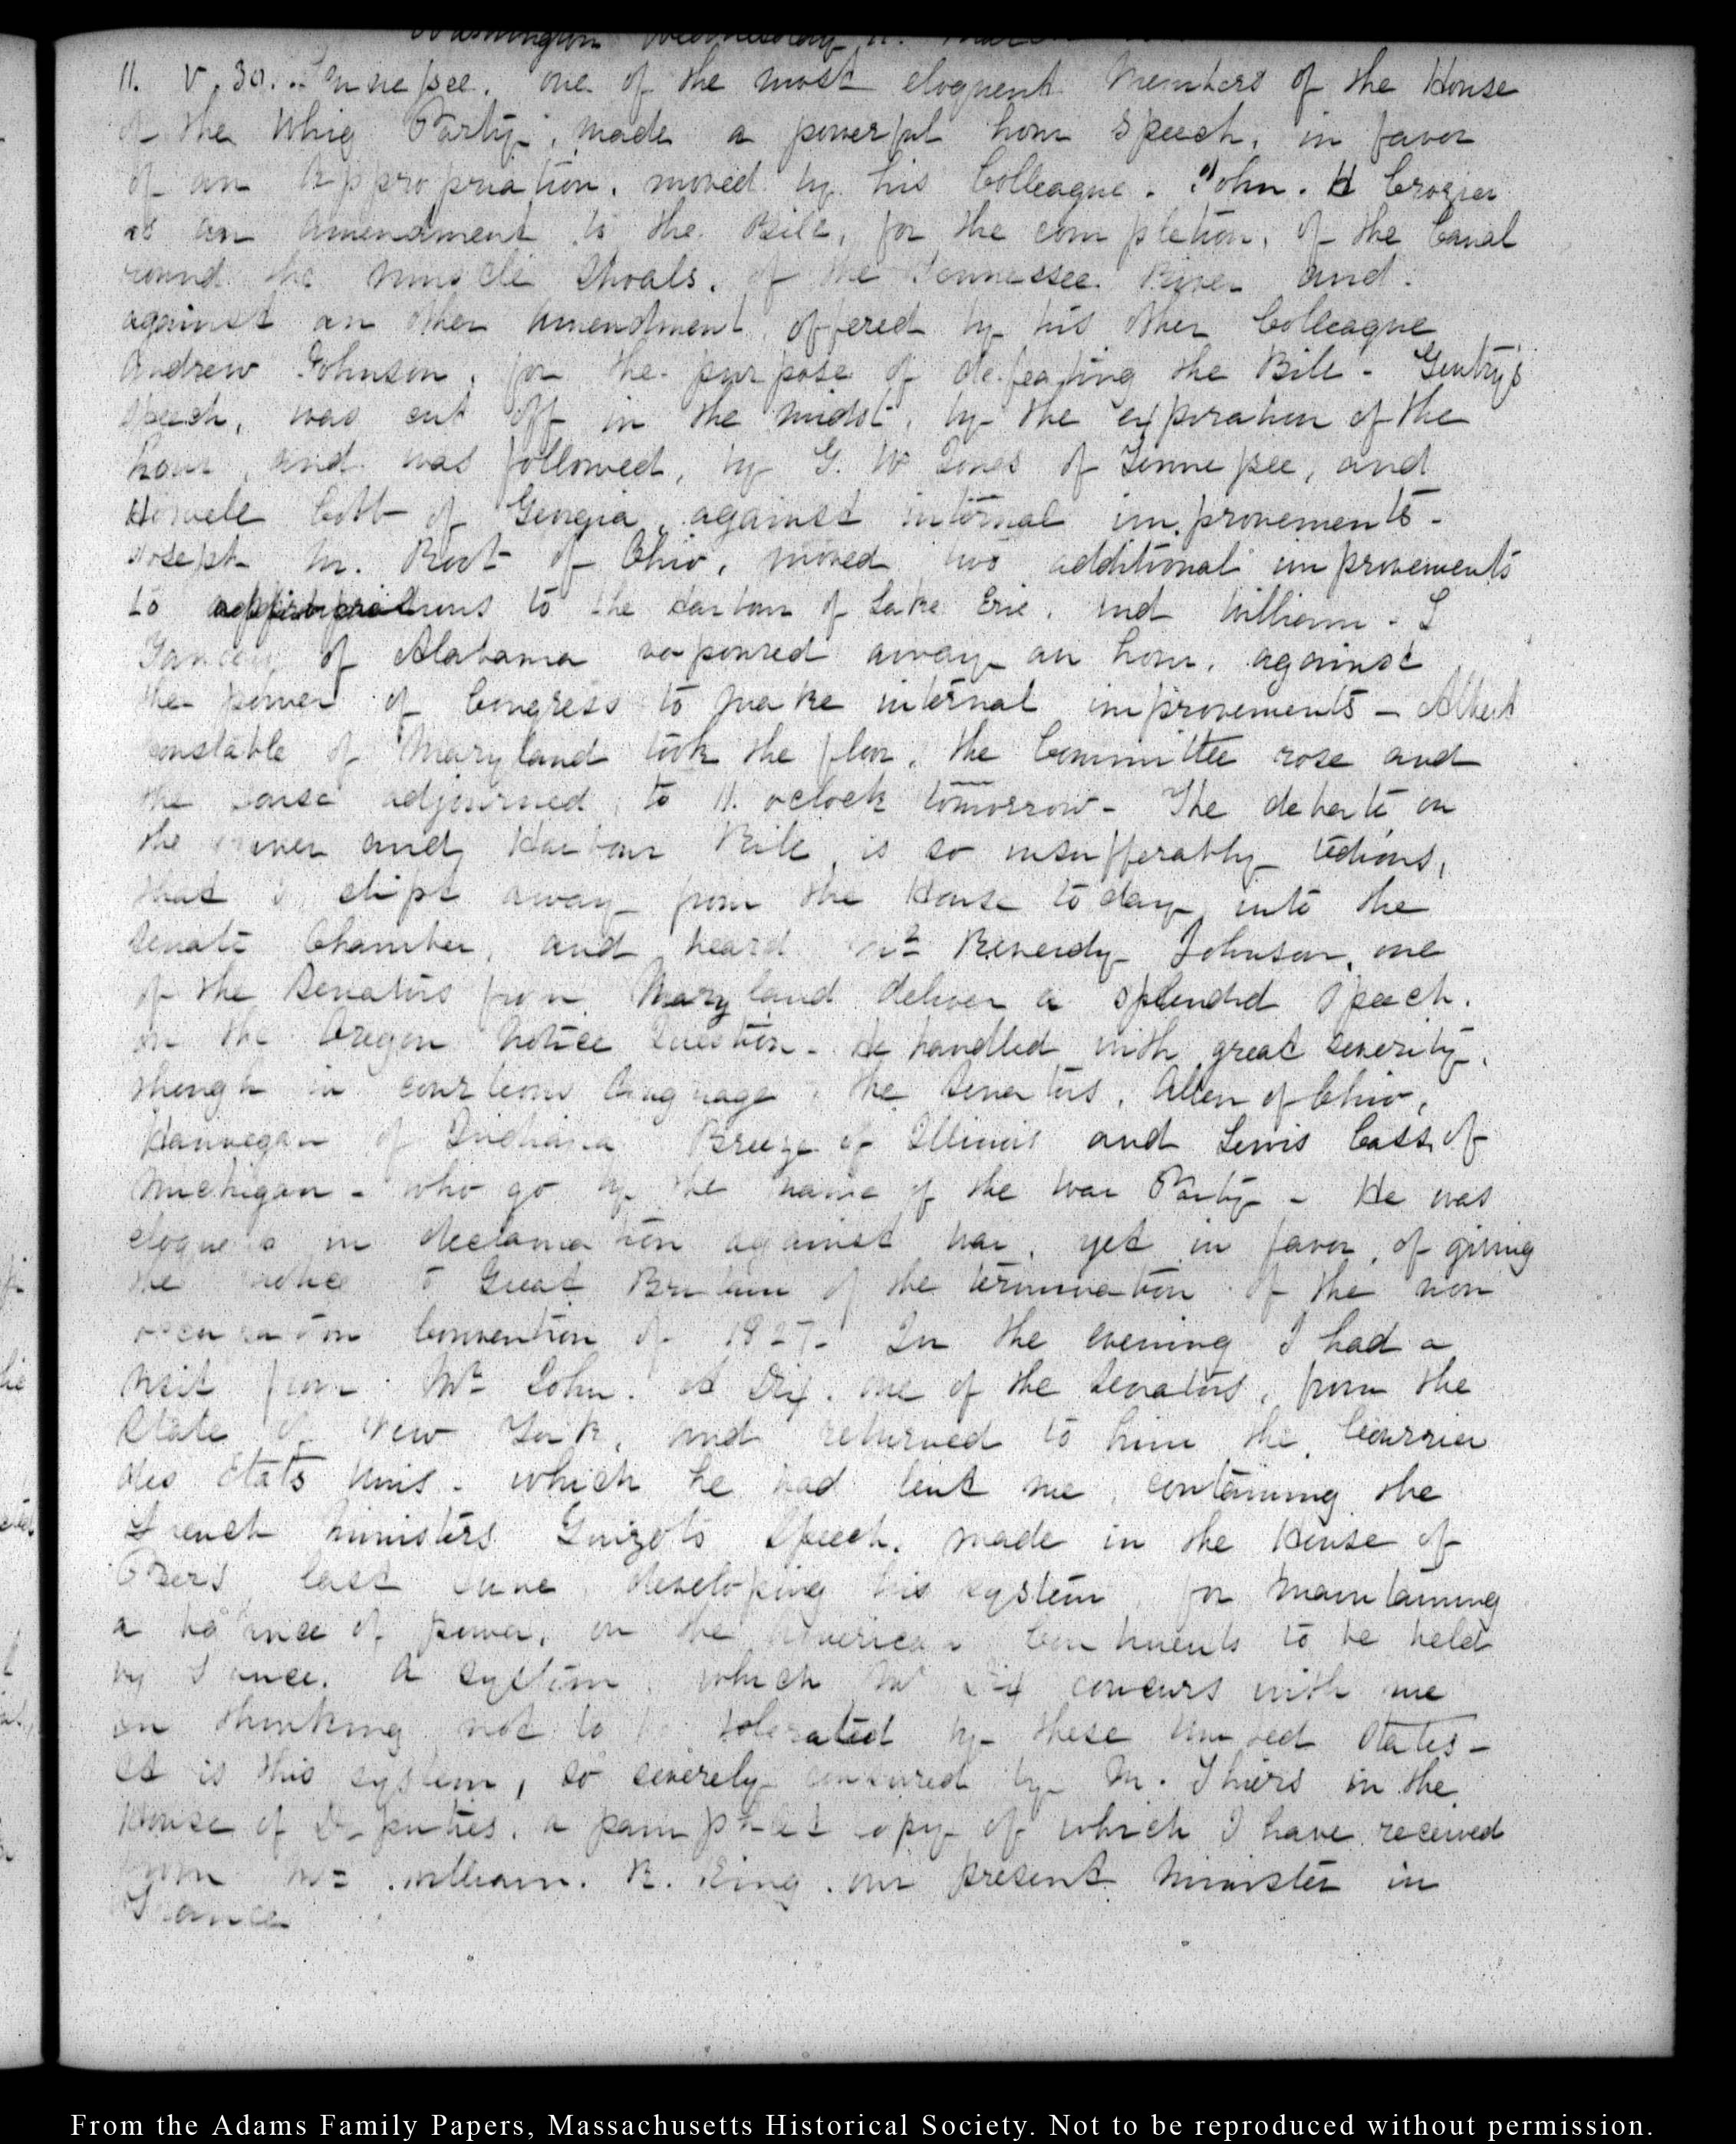 Washington Wednesday 11. March
11. V. 30. Tennessee, one of the most eloquent Members of the House
of the Whig Party, made a powerful hour speech, in favor
of an Appropriation, moved by his Colleague. John. H Crozier
as an amendment to the Bill, for the completion, of the Canal
round the Muscle Shoals, of the Tennessee River and
against an other amendment, offered by his other Colleague
Andrew Johnson, for the purpose of defeating the Bill - Gentry's
speech, was cut off in the midst, by the expiration of the
hour, and was followed, by G. W Jones of Tennessee, and
Howell Cobb of Georgia, against internal improvements -
Joseph M. Root of Ohio, moved two additional improvements
to appropriations to the Harbour of Lake Erie, and William. L
Yancey of Alabama vapoured away an hour, against
the power of Congress to make internal improvements - Albert
Constable of Maryland took the floor, the Committee rose and
the House adjourned, to 11. oclock tomorrow - The debate, on
the River and Harbour Bill, is so insufferably tedious,
that I slipt away from the House to day into the
Senate Chamber, and heard Mr Reverdy Johnson, one
of the Senators from Maryland deliver a splendid Speech.
on the Oregon Notice Question - He handled with great severity,
though in courteous language, the Senators, Allen of Ohio,
Hannegan of Indiana Breeze of Illinois and Lewis Cass of
Michigan - who go by the name of the War Party - He was
eloquent in declamation against war, yet in favor, of giving
the notice to Great Britain of the termination of the non
occupation Convention of 1827 - In the evening I had a
visit from Mr John. A Dix. one of the Senators, from the
State of New York, and returned to him the Courrier
des Etats Unis - which he had lent me, containing the
French Ministers Guizots Speech, made in the House of
Peers, last June, developing his system, for maintaining
a balance of power, on the American Continents to be held
by France. A system, which Mr Dix concurs with me
in thinking not to be tolerated by these United States -
It is this system, so severely censured by M. Thiers in the
House of Deputies, a pamphlet copy of which I have received
from Mr William. R. King, our present Minister in
France
From the Adams Family Papers, Massachusetts Historical Society. Not to be reproduced without permission.